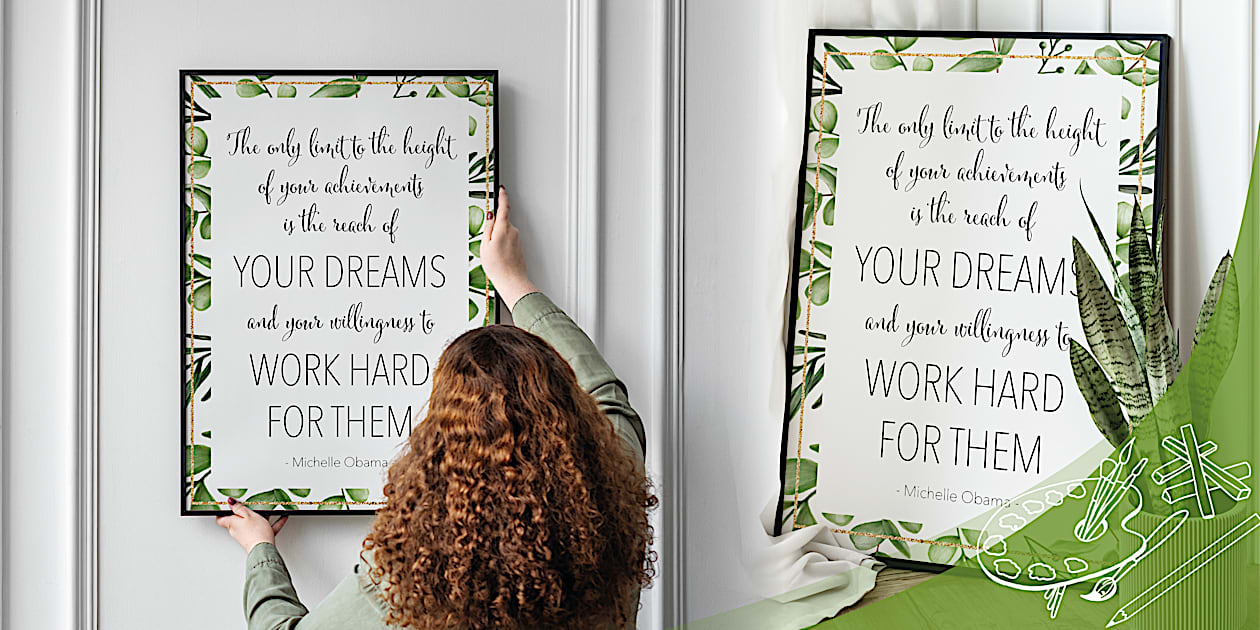 The only limit to the height
of your achievements
is the reach of
YOUR DREAMS
and your willingness to
WORK HARD
FOR THEM
- Michelle Obama
The only limit to the height
of your achievements
is the reach of
YOUR DREAMS
and your willingness to
WORK HARD
FOR THEM
- Michelle Obama -